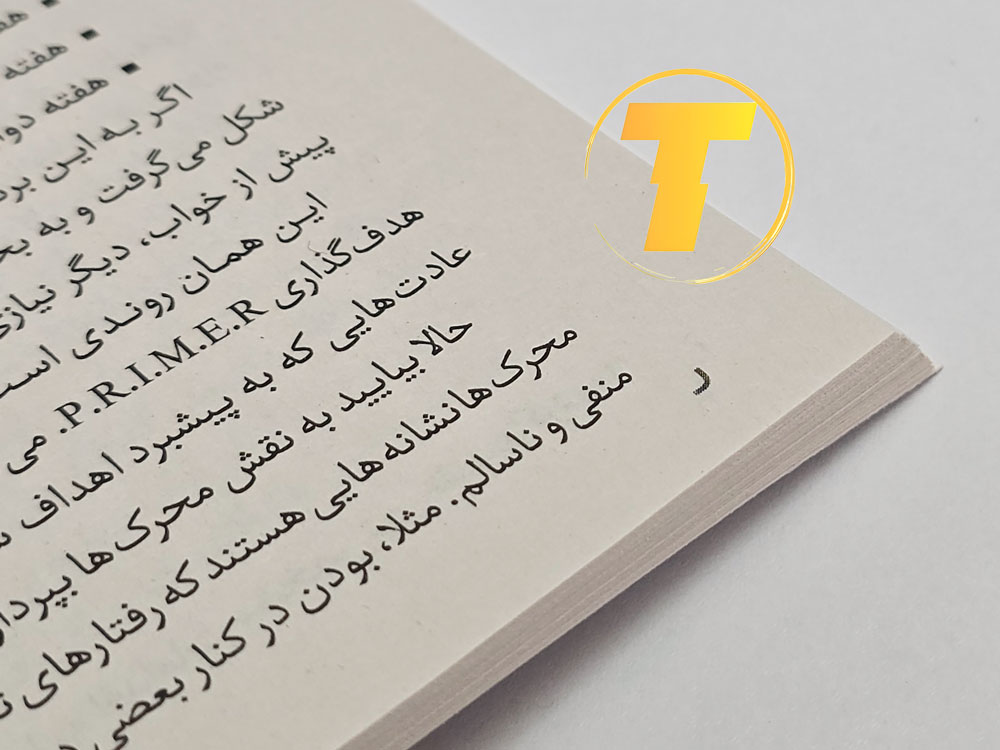 هفته
هفته
اگر به این
شکل می‌گرفت و به
پیش از خواب، دیگر
این همان روندی
هدف‌گذاری P.R.I.M.E.R. می
عادت‌هایی که به پیشبرد اهداف
حالا بیایید به نقش محرک ها
محرک ها نشانه هایی هستند که رفتارهای
منفی و ناسالم. مثلا، بودن در کنار بعضی
T